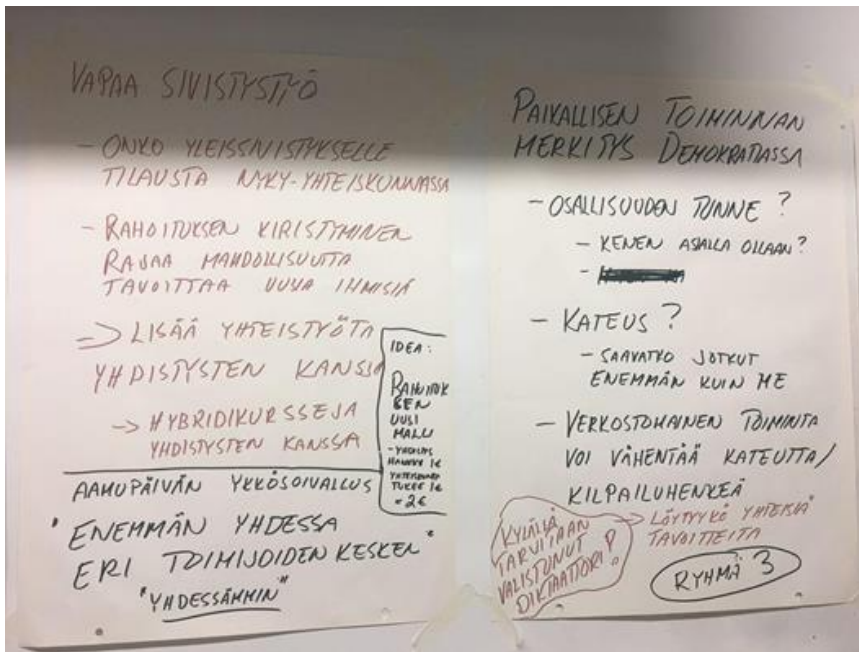 VAPAA SIVISTYSTYÖ
- ONKO YLEISSIVISTYKSELLE
TILAUSTA NYKY-YHTEISKUNNASSA
- RAHOITUKSEN KIRISTYMINEN
RAJAA MAHDOLLISUUTTA
TAVOITTAA UUSIA IHMISIÄ
=> LISÄÄ YHTEISTYÖTÄ
YHDISTYSTEN KANSSA
-> HYBRIDIKURSSEJA
YHDISTYSTEN KANSSA
IDEA:
RAHOITUK
SEN
UUSI
MALLI
- YHDISTYS
HANKKII 1€
YHTEISKUNTA
TUKEE 1€
= 2€
AAMUPÄIVÄN YKKÖSOIVALLUS
"ENEMMÄN YHDESSÄ
ERI TOIMIJOIDEN KESKEN"
"YHDESSÄMMIN"
PAIKALLISEN TOIMINNAN
MERKITYS DEMOKRATIASSA
- OSALLISUUDEN TUNNE?
- KENEN ASIALLA OLLAAN?
-
- KATEUS?
- SAAVATKO JOTKUT
ENEMMÄN KUIN ME
- VERKOSTOMAINEN TOIMINTA
VOI VÄHENTÄÄ KATEUTTA/
KILPAILUHENKEÄ
-> LÖYTYYKÖ YHTEISIÄ
TAVOITTEITA
KYLÄLLÄ
TARVITAAN
VALISTUNUT
DIKTAATTORI!
RYHMÄ 3